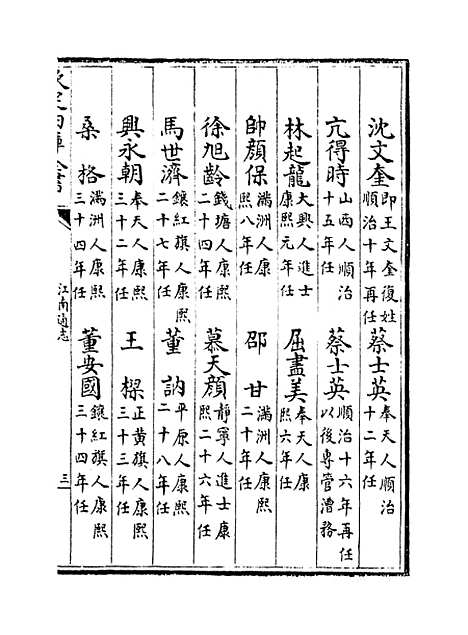 沈文奎即王文奎復姓順治十年再任 蔡士英奉天人順治十二年任
亢得時山西人順治十五年任 蔡士英順治十六年再任以後專管漕務
林起龍大興人進士康熙元年任 屈盡美奉天人康熙六年任
帥顔保滿洲人康熙八年任 邵甘滿洲人康熙二十年任
徐旭齡錢塘人康熙二十四年任 慕天顔靜寧人進士康熙二十六年任
馬世濟鑲紅旗人康熙二十七年任 董訥平原人康熙二十八年任
興永朝奉天人康熙三十二年任 王樑正黄旗人康熙三十三年任
桑格滿洲人康熙三十四年任 董安國鑲紅旗人康熙三十四年任
欽定四庫全書
江南通志
三